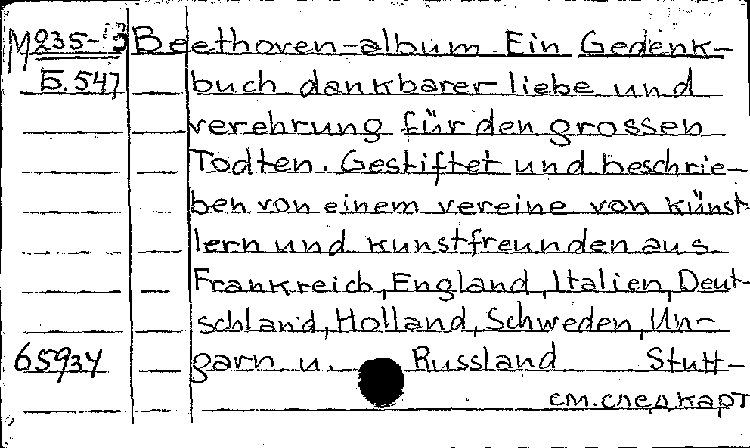 М235-13 Beethoven-album. Ein Gedenk-
Б.547 buch dankbarer liebe und
verehrung für den grossen
Todten. Gestiftet und beschrie-
ben von einem vereine von Künst-
lern und kunstfreunden aus
Frankreich, England, Italien, Deut-
schland, Holland, Schweden, Un-
65934 garn u. Russland Stutt-
см.след карт